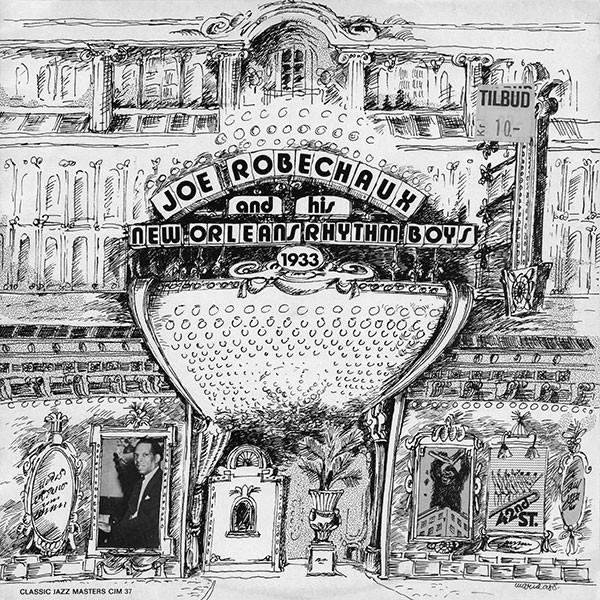 TILBUD
10.-
JOE ROBECHAUX
and his
NEW ORLEANS RHYTHM BOYS
1933
42nd ST.
CLASSIC JAZZ MASTERS CJM 37